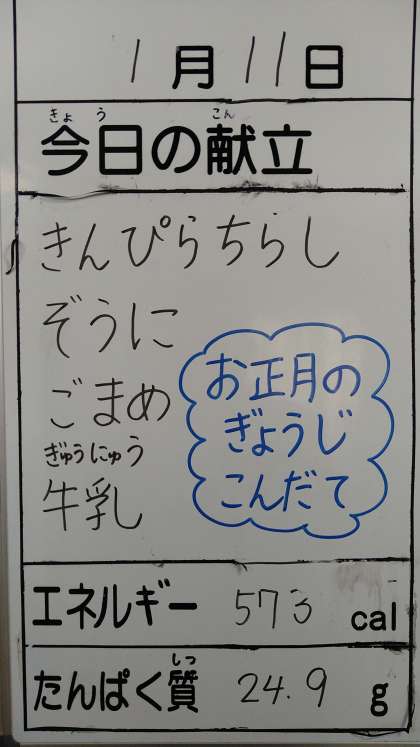 1月11日
きょう こん
今日の献立
きんぴらちらし
ぞうに
ごまめ
ぎゅうにゅう
牛乳
お正月の
ぎょうじ
こんだて
エネルギー 573 cal
しつ
たんぱく質 24.9 g